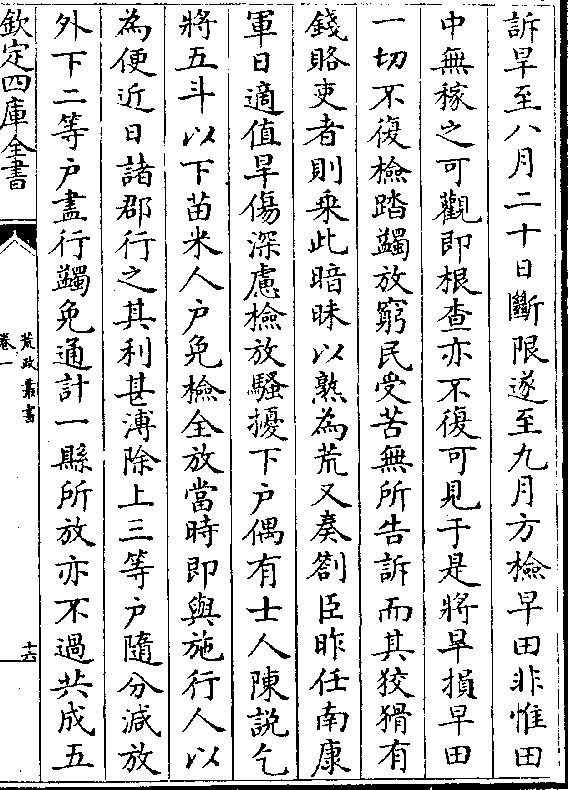 訴旱至八月二十日斷限遂至九月方檢旱田非惟田
中無稼之可觀即根查亦不復可見于是將旱損旱田
一切不復檢踏蠲放窮民受苦無所告訴而其狡猾有
錢賂吏者則乗此暗昧以熟為荒又奏劄臣昨任南康
軍日適值旱傷深慮檢放騷擾下户偶有士人陳説乞
將五斗以下苗米人户免檢全放當時即與施行人以
為便近日諸郡行之其利甚溥除上三等户隨分減放
外下二等户盡行蠲免通計一縣所放亦不過共成五
欽定四庫全書
荒政叢書
卷一
十六